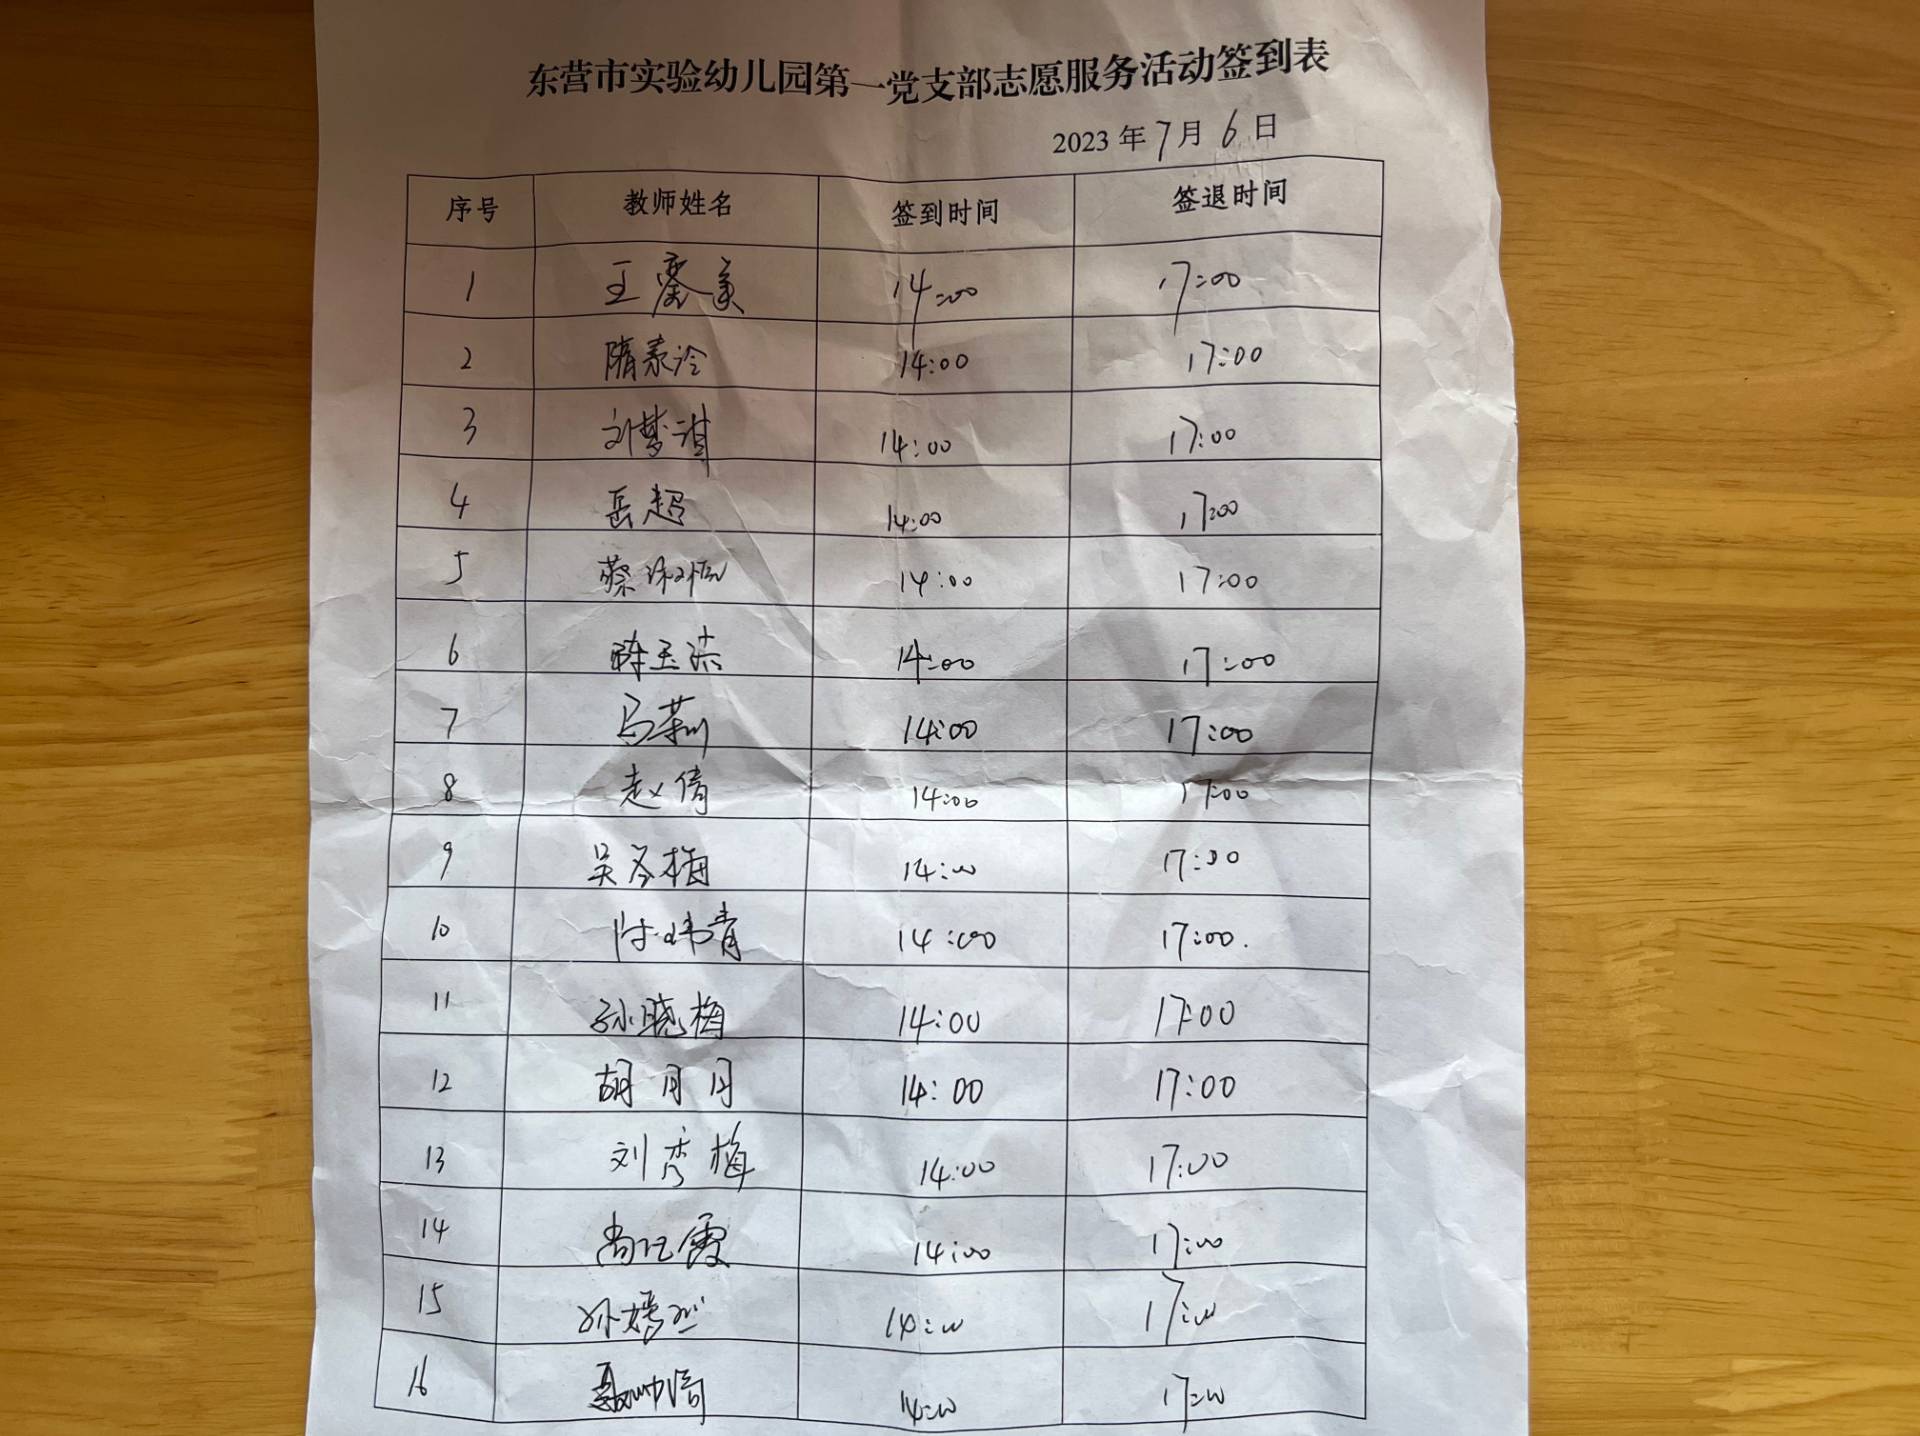 东营市实验幼儿园第一党支部志愿服务活动签到表
2023 年 7 月 6 日
序号 教师姓名 签到时间 签退时间
1 王 美 14:00 17:00
2 隋泰冷 14:00 17:00
3 刘梦淇 14:00 17:00
4 岳超 14:00 17:00
5 蔡 14:00 17:00
6 陈玉洁 14:00 17:00
7 马莉 14:00 17:00
8 赵倩 14:00 17:00
9 吴冬梅 14:00 17:00
10 陈玮青 14:00 17:00.
11 孙晓梅 14:00 17:00
12 胡月月 14:00 17:00
13 刘秀梅 14:00 17:00
14 尚 霞 14:00 17:00
15 孙嫣然 14:00 17:00
16 14:00 17:00